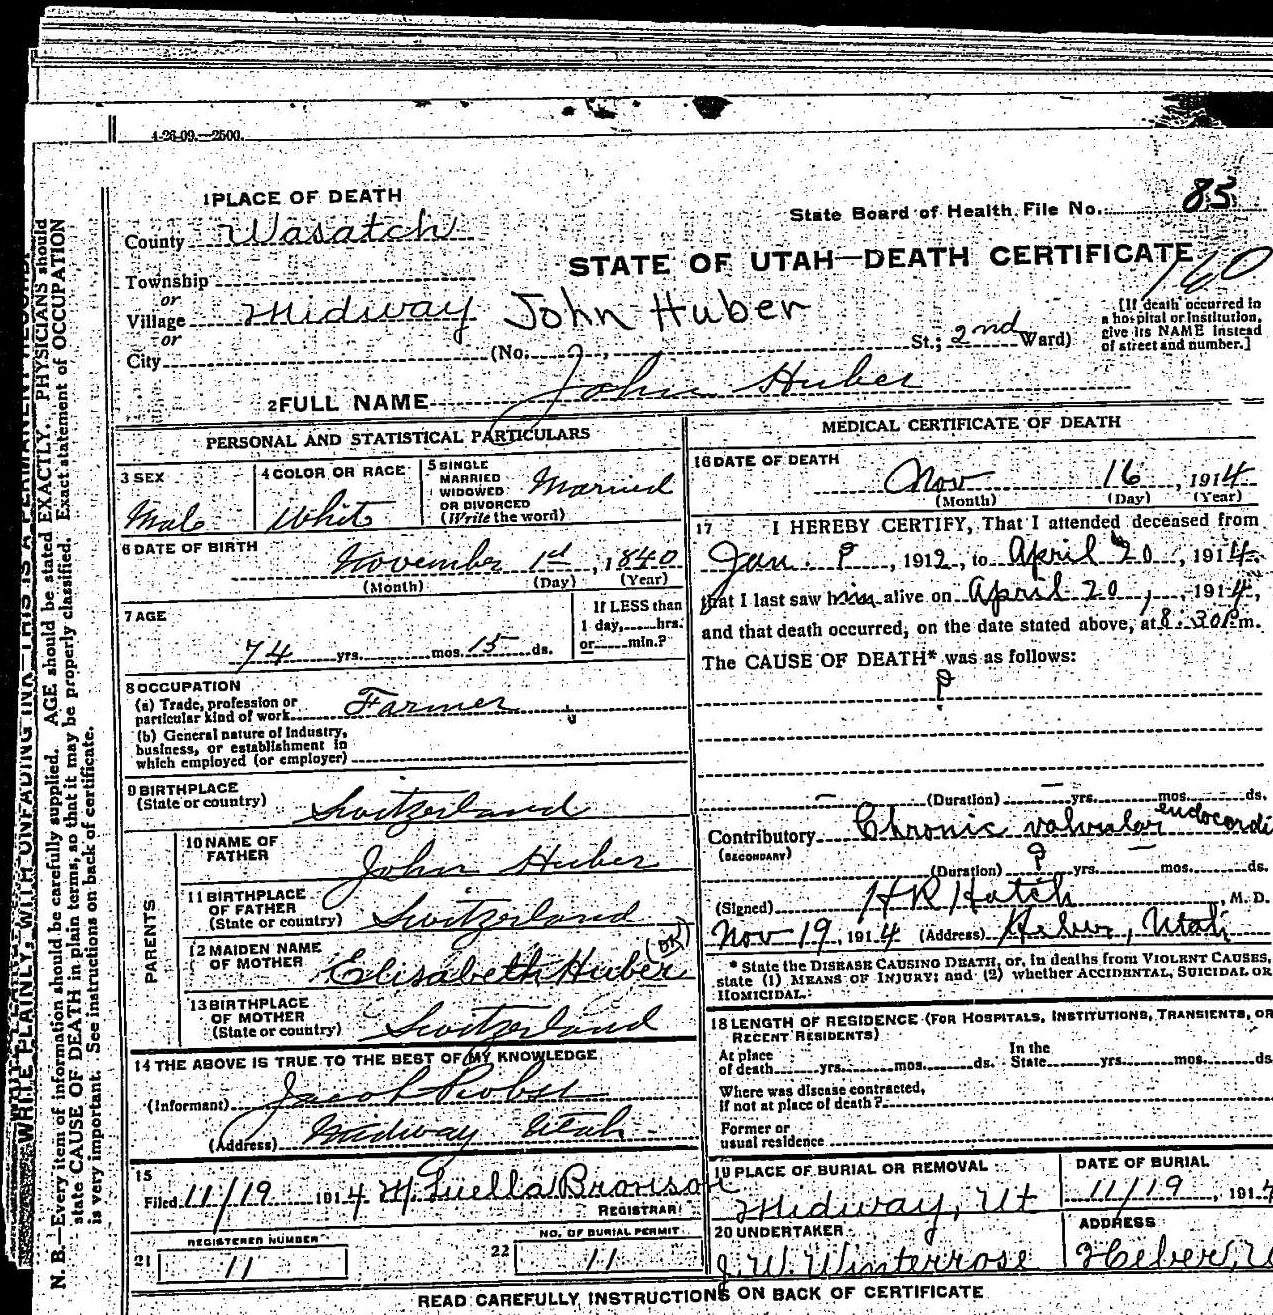 4-26-09.—2500.
1 PLACE OF DEATH
County Wasatch
Township
or
Village Midway
or
City
State Board of Health File No. 85
STATE OF UTAH—DEATH CERTIFICATE
160
John Huber
(No. ?, St.; 2nd Ward)
[If death occurred in
a hospital or institution,
give its NAME instead
of street and number.]
2 FULL NAME John Huber
PERSONAL AND STATISTICAL PARTICULARS
3 SEX
Male
4 COLOR OR RACE
White
5 SINGLE
MARRIED
WIDOWED
OR DIVORCED
(Write the word)
Married
6 DATE OF BIRTH
November 1st, 1840
(Month) (Day) (Year)
7 AGE
74 yrs. mos. 15 ds.
If LESS than
1 day, hrs.
or min.?
8 OCCUPATION
(a) Trade, profession or
particular kind of work Farmer
(b) General nature of Industry,
business, or establishment in
which employed (or employer)
9 BIRTHPLACE
(State or country) Switzerland
PARENTS
10 NAME OF
FATHER John Huber
11 BIRTHPLACE
OF FATHER
(State or country) Switzerland
12 MAIDEN NAME
OF MOTHER Elisabeth Huber (OK)
13 BIRTHPLACE
OF MOTHER
(State or country) Switzerland
14 THE ABOVE IS TRUE TO THE BEST OF MY KNOWLEDGE
(Informant) Jacob Probst
(Address) Midway Utah
15
Filed 11/19 1914 M. Luella Bronson
REGISTRAR
21 REGISTERED NUMBER
11
22 NO. OF BURIAL PERMIT
11
MEDICAL CERTIFICATE OF DEATH
16 DATE OF DEATH
Nov 16, 1914
(Month) (Day) (Year)
17 I HEREBY CERTIFY, That I attended deceased from
Jan. ?, 1912, to April 20, 1914,
that I last saw him alive on April 20, 1914,
and that death occurred, on the date stated above, at 8:30 P.m.
The CAUSE OF DEATH* was as follows:
?
(Duration) yrs. mos. ds.
Contributory Chronic valvular endocardi
(SECONDARY)
(Duration) ? yrs. mos. ds.
(Signed) H R Hatch, M. D.
Nov 19, 1914 (Address) Heber, Utah
* State the DISEASE CAUSING DEATH, or, in deaths from VIOLENT CAUSES,
state (1) MEANS OF INJURY; and (2) whether ACCIDENTAL, SUICIDAL OR
HOMICIDAL.
18 LENGTH OF RESIDENCE (FOR HOSPITALS, INSTITUTIONS, TRANSIENTS, OR
RECENT RESIDENTS)
At place
of death yrs. mos. ds.
In the
State yrs. mos. ds
Where was disease contracted,
if not at place of death?
Former or
usual residence
19 PLACE OF BURIAL OR REMOVAL
Midway, Ut
DATE OF BURIAL
11/19, 1914
20 UNDERTAKER
J. W. Winterrose
ADDRESS
Heber, U
READ CAREFULLY INSTRUCTIONS ON BACK OF CERTIFICATE
WRITE PLAINLY, WITH UNFADING INK—THIS IS A PERMANENT RECORD.
N. B.—Every item of information should be carefully supplied. AGE should be stated EXACTLY. PHYSICIANS should
state CAUSE OF DEATH in plain terms, so that it may be properly classified. Exact statement of OCCUPATION
is very important. See instructions on back of certificate.